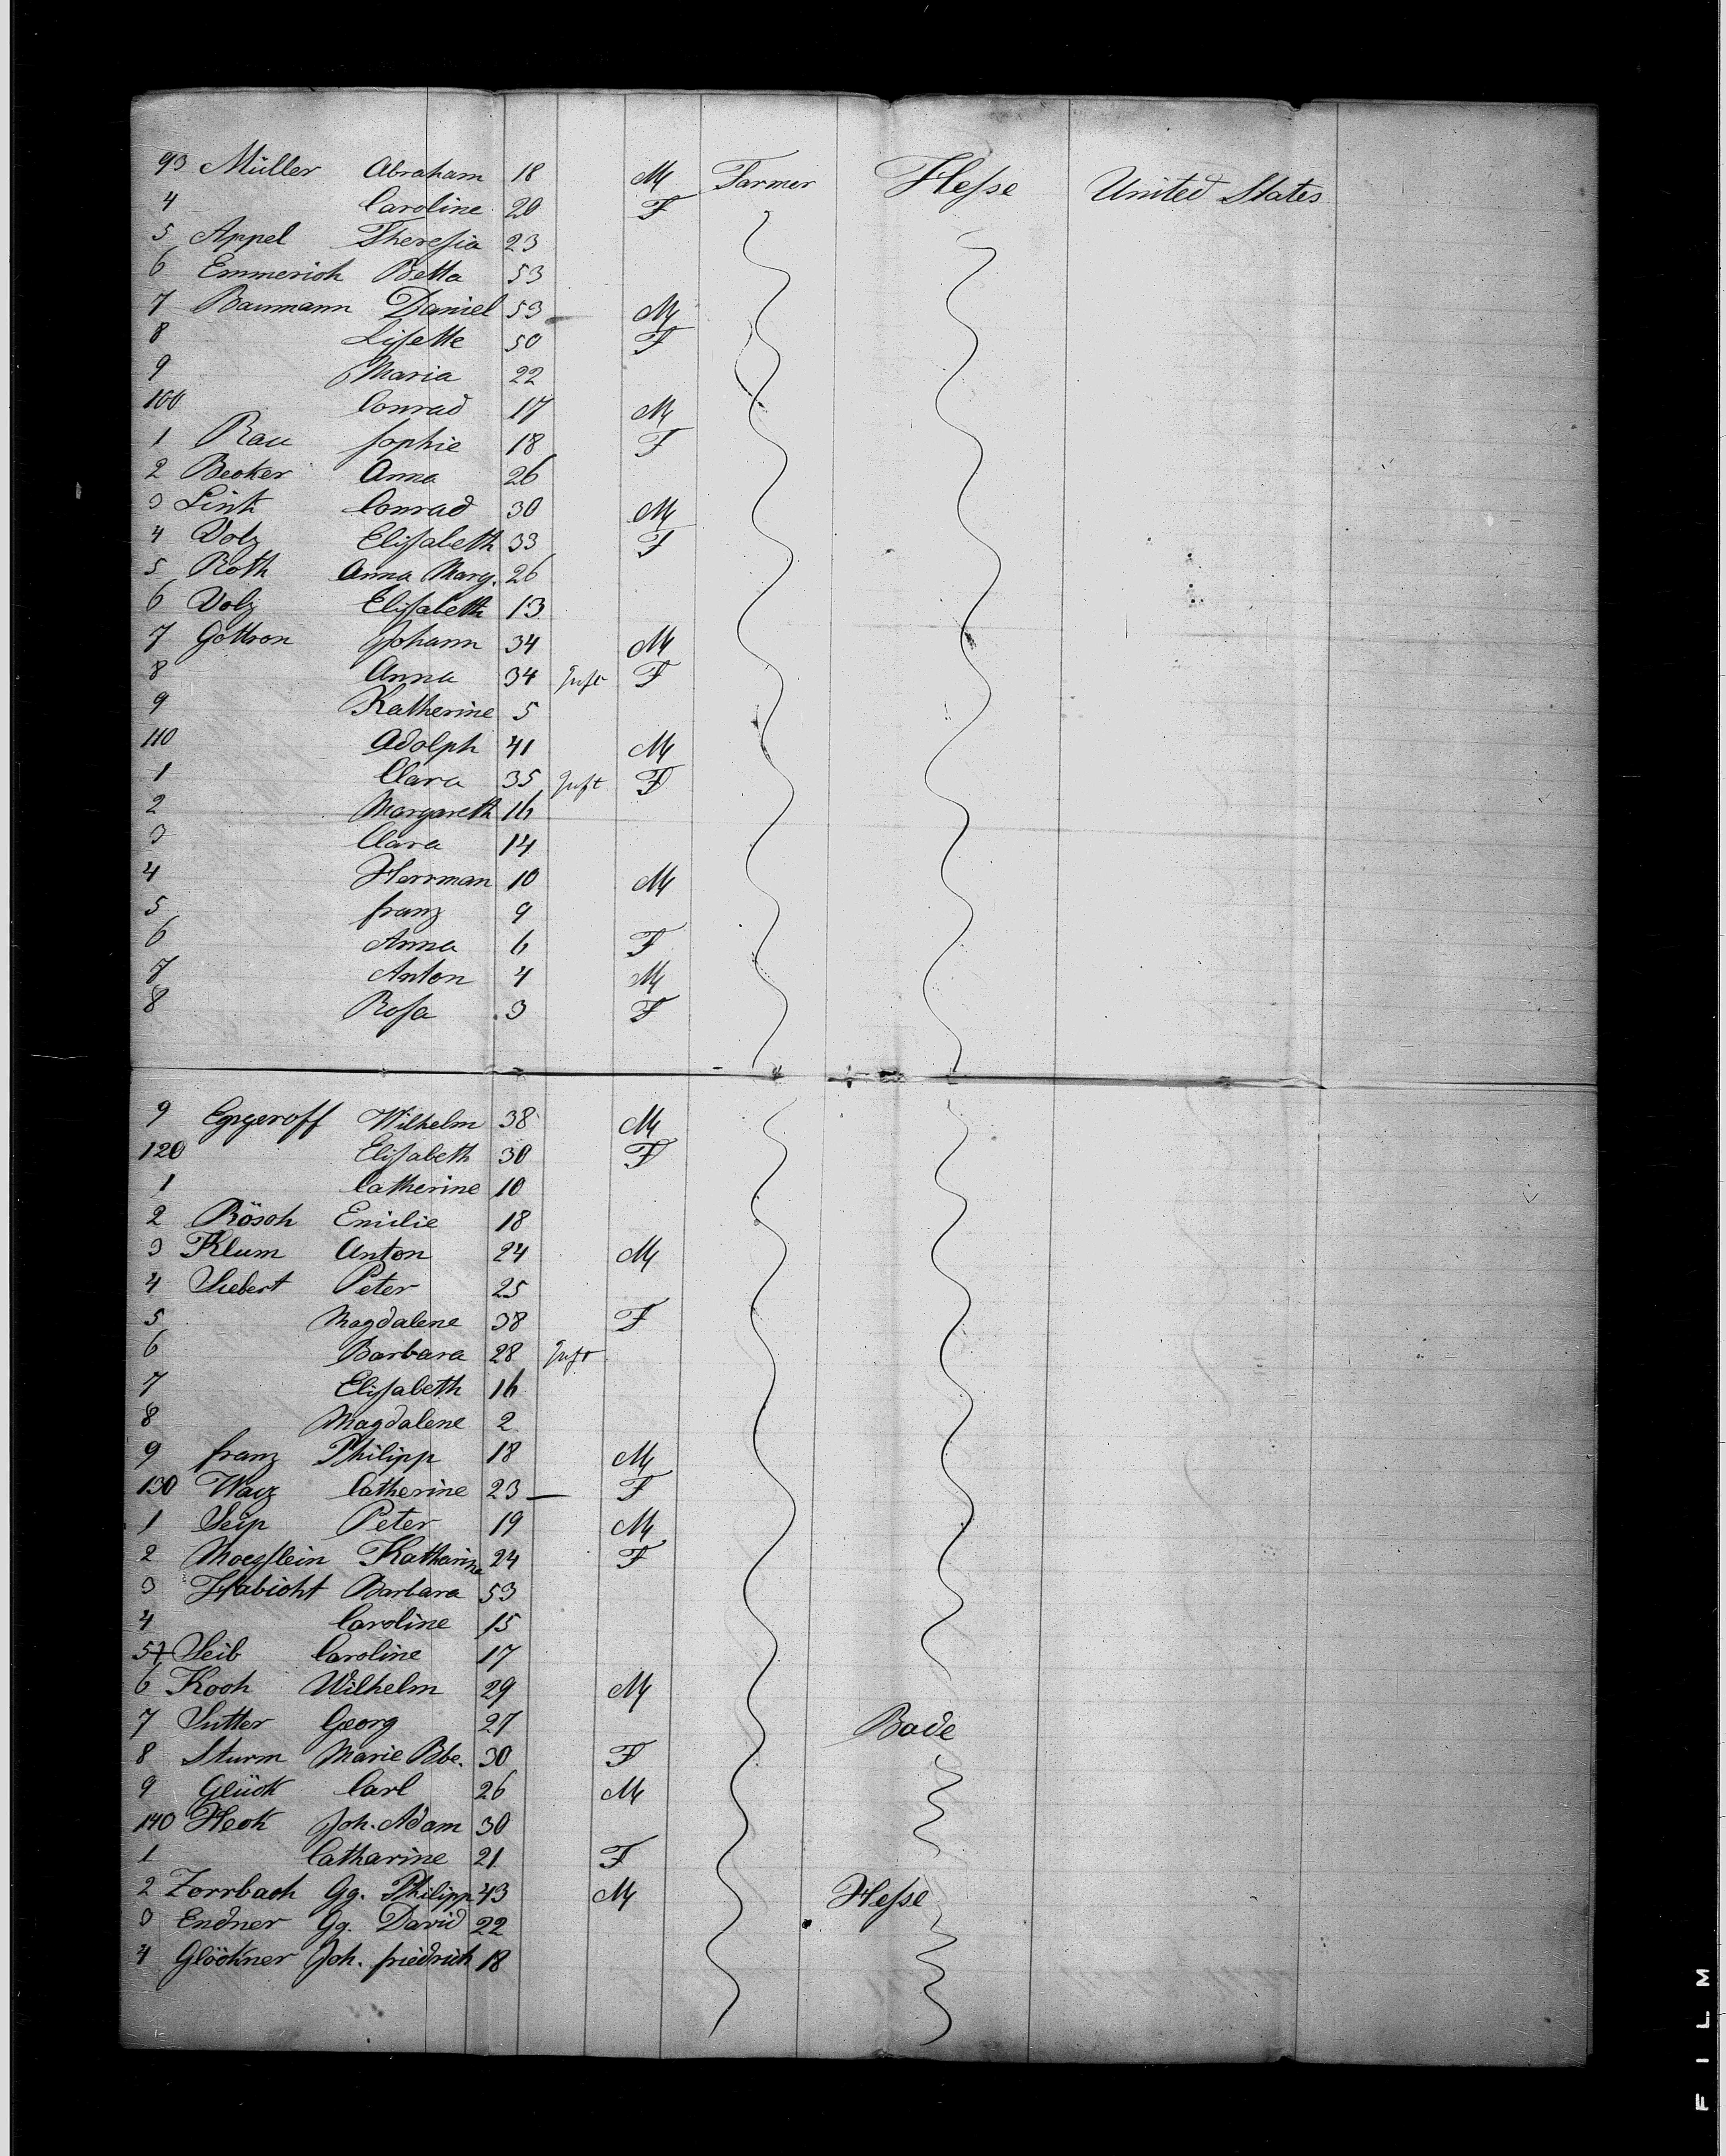 93 Müller Abraham 18 M Farmer Heſse United States
4 Caroline 20 F
5 Appel Thereſia 23
6 Emmerich Betta 53
7 Baumann Daniel 53 M
8 Liſette 50 F
9 Maria 22
100 Conrad 17 M
1 Rau Sophie 18 F
2 Becker Anna 26
3 Link Conrad 30 M
4 Volz Eliſabeth 33 F
5 Roth Anna Marg. 26
6 Volz Eliſabeth 13
7 Gottron Johann 34 M
8 Anna 34 F
9 Katherine 5
110 Adolph 41 M
1 Clara 35 F
2 Margareth 16
3 Clara 14
4 Herrman 10 M
5 Franz 9
6 Anna 6 F
7 Anton 4 M
8 Roſa 3 F
9 Wilhelm 38 M
120 Eliſabeth 30 F
1 Catherine 10
2 Rösch Emilie 18
3 Klum Anton 24 M
4 Siebert Peter 25
5 Magdalene 38 F
6 Barbara 28
7 Eliſabeth 16
8 Magdalene 2
9 Franz Philipp 18 M
130 Catherine 23 — F
1 Seip Peter 19 M
2 Katharina 24 F
3 Habicht Barbara 53
4 Caroline 15
5 + Seib Caroline 17
6 Koch Wilhelm 29 M
7 Sutter Georg 27 Bade
8 Sturm Marie Bbe. 30 F
9 Glück Carl 26 M
140 Heck Joh. Adam 30
1 Catharine 21 F
2 Zorrbach Gg. Philipp 43 M Heſse
3 Endner Gg. David 22
4 Glöckner Joh. Friedrich 18
FILM